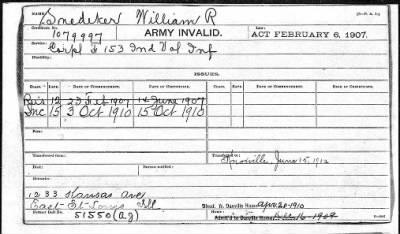 NAME: Snedeker William R (3-P. A. I.)
Certificate No. 1079997 ARMY INVALID. Law: ACT FEBRUARY 6, 1907.
Service: Corpl F 153 Ind Vol Inf
Disability:
ISSUES.
CLASS. RATE. DATE OF COMMENCEMENT. DATE OF CERTIFICATE. CLASS. RATE. DATE OF COMMENCEMENT. DATE OF CERTIFICATE.
Reis 12 23 Feb 1907 14 June 1907
Inc 15 3 Oct 1910 15 Oct 1910
Fees:
Transferred from: Transferred to: Knoxville, June 15, 1912
Died: Bureau notified:
1233 Kansas Ave
East St Louis Ill
Former Roll No. 51550 (Ag)
Disch. fr. Danville Home apr. 20-1910
Admit'd to Danville Home 16-1909